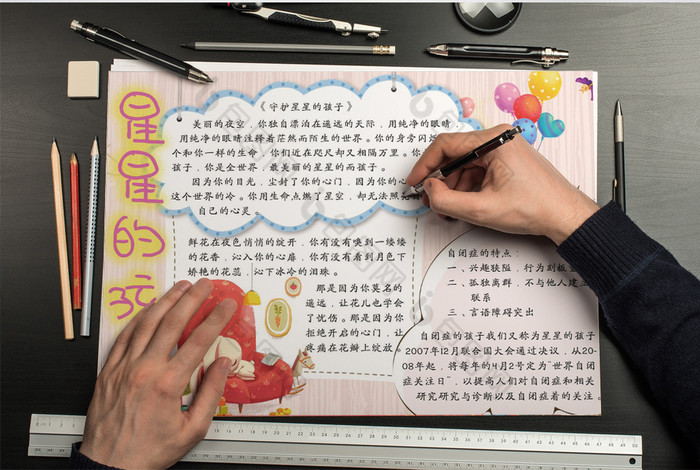 星
星
的
《守护星星的孩子》
美丽的夜空，你独自漂泊在遥远的天际，用纯净的眼睛，
用纯净的眼睛注释着茫然而陌生的世界。你的身旁闪烁
个和你一样的生命，你们近在咫尺却又相隔万里。你
孩子，你是全世界，最美丽的星星的而孩子。
因为你的目光，尘封了你的心门，因为你的心
这个世界的冷。你用生命点燃了星空，却无法照
自己的心灵。
鲜花在夜色悄悄的绽开，你有没有嗅到一缕缕
的花香，沁入你的心扉，你有没有看到月色下
娇艳的花蕊，沁下冰冷的泪珠。
是因为你莫名的
遥远，让花儿也学会
了忧伤。那是因为你
拒绝开启的心门，让
疼痛在花瓣上绽放。
自闭症的特点：
一、兴趣狭隘，行为刻板
二、孤独离群，不与他人建立
联系
三、言语障碍突出
自闭症的孩子我们又称为星星的孩子
2007年12月联合国大会通过决议，从20-
08年起，将每年的4月2号定为"世界自闭
症关注日"，以提高人们对自闭症和相关
研究研究与诊断以及自闭症着的关注。